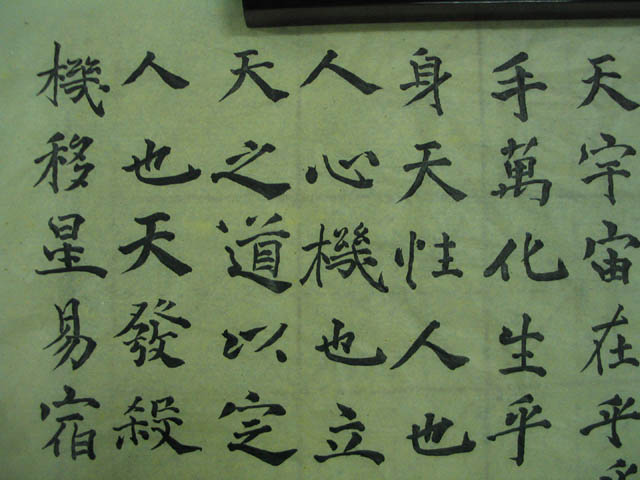 天宇宙在乎
手萬化生乎
身天性人也
人心機也立
天之道以定
人也天發殺
機移星易宿